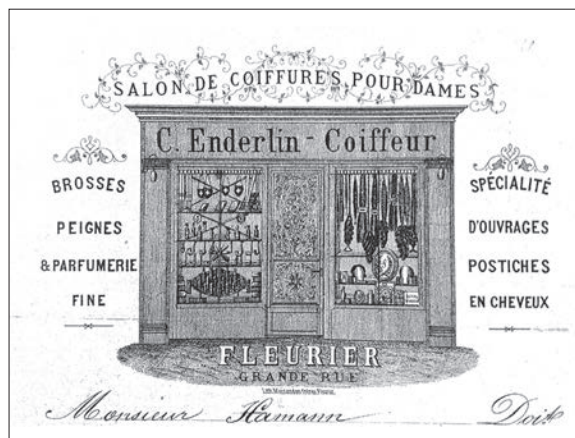 SALON DE COIFFURES POUR DAMES
C. Enderlin - Coiffeur
BROSSES
PEIGNES
& PARFUMERIE
FINE
SPÉCIALITÉ
D'OUVRAGES
POSTICHES
EN CHEVEUX
FLEURIER
GRANDE RUE
Monsieur Hamann Doit